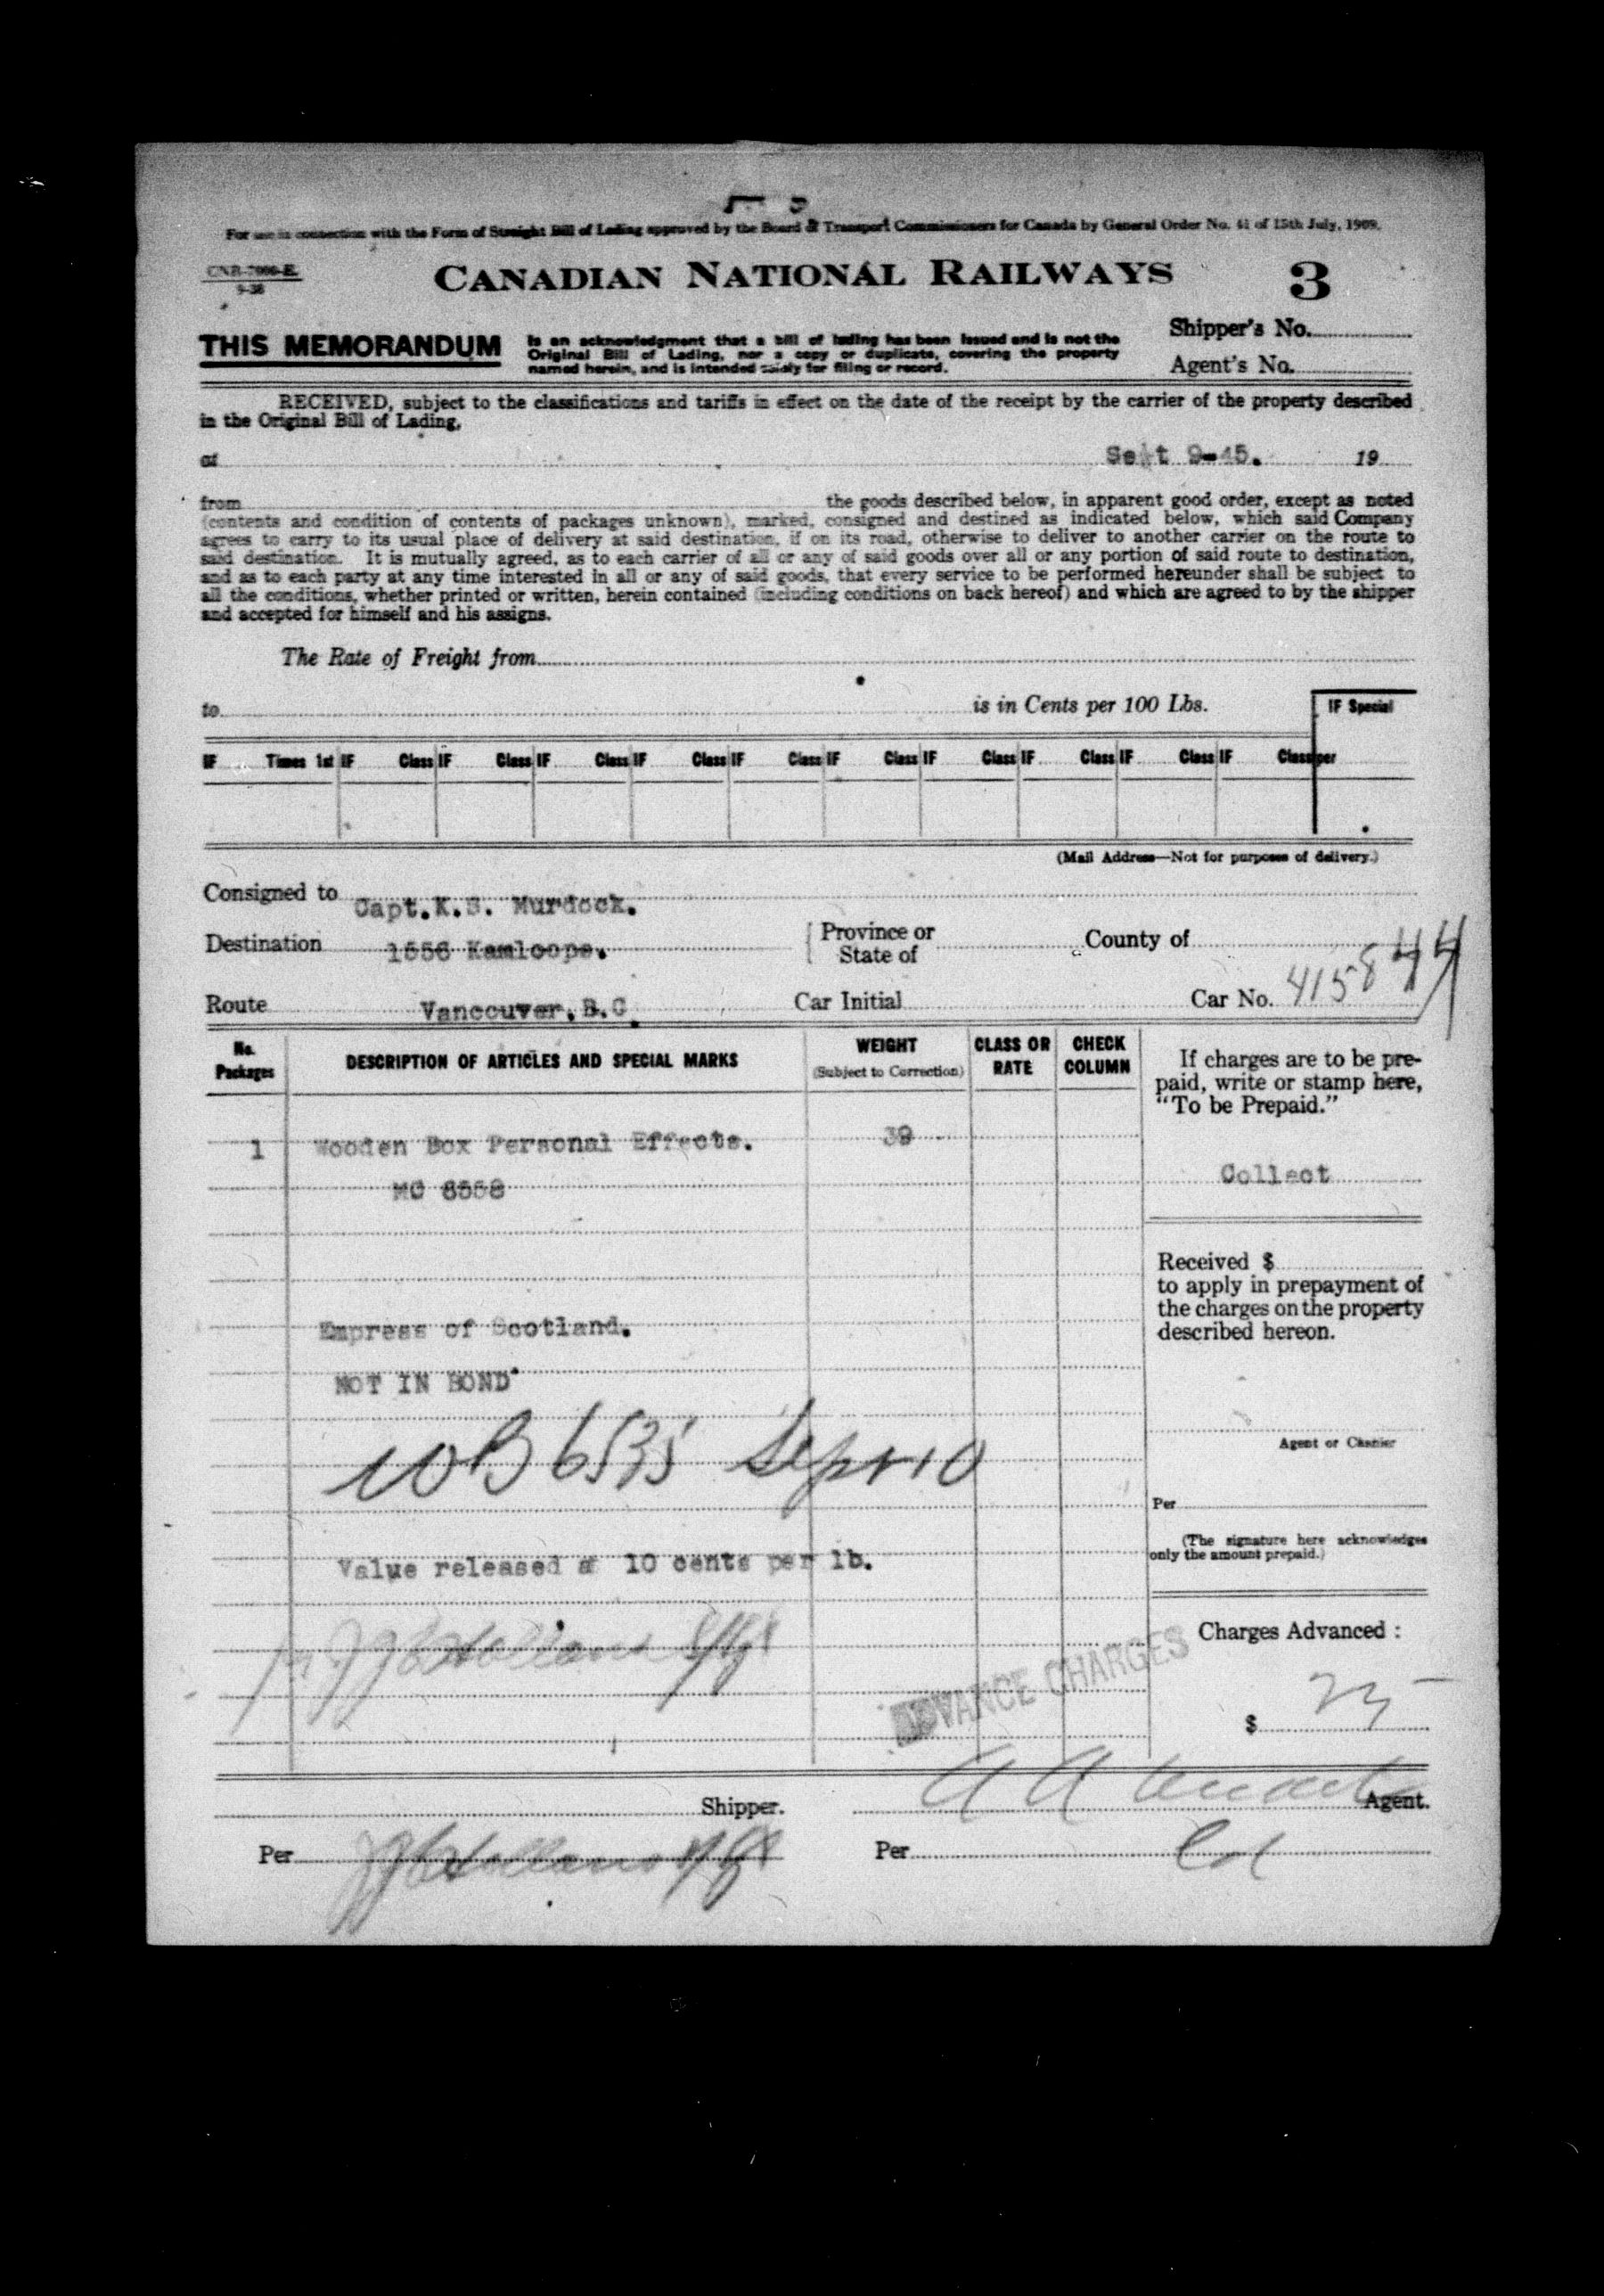 For use in connection with the Form of Straight Bill of Lading approved by the Board of Transport Commissioners for Canada by General Order No. 41 of 15th July, 1909.
CNR-7000-E
9-38
CANADIAN NATIONAL RAILWAYS 3
THIS MEMORANDUM
is an acknowledgment that a bill of lading has been issued and is not the
Original Bill of Lading, nor a copy or duplicate, covering the property
named herein, and is intended solely for filing or record.
Shipper's No.
Agent's No.
RECEIVED, subject to the classifications and tariffs in effect on the date of the receipt by the carrier of the property described
in the Original Bill of Lading,
at Sept 9-45. 19
from the goods described below, in apparent good order, except as noted
(contents and condition of contents of packages unknown), marked, consigned and destined as indicated below, which said Company
agrees to carry to its usual place of delivery at said destination, if on its road, otherwise to deliver to another carrier on the route to
said destination. It is mutually agreed, as to each carrier of all or any of said goods over all or any portion of said route to destination,
and as to each party at any time interested in all or any of said goods, that every service to be performed hereunder shall be subject to
all the conditions, whether printed or written, herein contained (including conditions on back hereof) and which are agreed to by the shipper
and accepted for himself and his assigns.
The Rate of Freight from
to is in Cents per 100 Lbs. IF Special
IF Times 1st IF Class IF Class IF Class IF Class IF Class IF Class IF Class IF Class IF Class IF Class per
(Mail Address—Not for purposes of delivery.)
Consigned to Capt.K.S. Murdock.
Destination 1556 Kamloops. Province or State of County of
Route Vancouver.B.C. Car Initial Car No. 415844
No. Packages DESCRIPTION OF ARTICLES AND SPECIAL MARKS WEIGHT (Subject to Correction) CLASS OR RATE CHECK COLUMN
If charges are to be pre-
paid, write or stamp here,
"To be Prepaid."
1 Wooden Box Personal Effects. 39
Collect
MC 8558
Received $
to apply in prepayment of
the charges on the property
described hereon.
Empress of Scotland.
NOT IN BOND
Agent or Cashier
WB 6535 Sept 10
Per
(The signature here acknowledges
only the amount prepaid.)
Value released @ 10 cents per lb.
Charges Advanced :
ADVANCE CHARGES
$ 25
Shipper. Agent.
Per Per